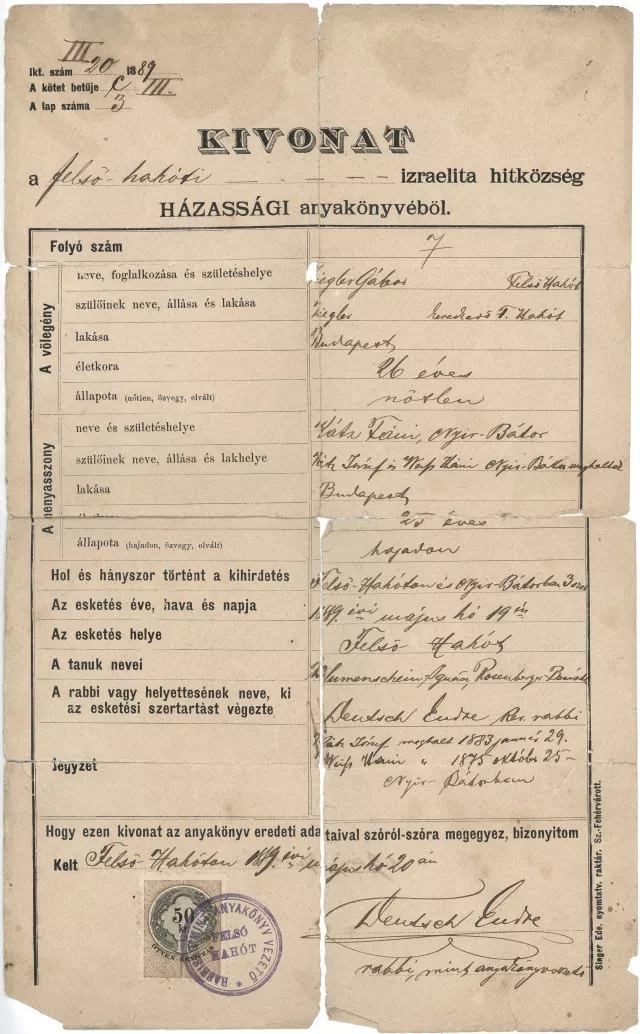 Ikt. szám III 20 1889
A kötet betüje C III.
A lap száma 3
KIVONAT
a felső-hahóti izraelita hitközség
HÁZASSÁGI anyakönyvéböl.
Folyó szám 7
A völegény
neve, foglalkozása és születéshelye Ziegler Gábor Felső Hahót
szülőinek neve, állása és lakása Ziegler kereskedő F. Hahót
lakása Budapest
életkora 26 éves
állapota (nötlen, özvegy, elvált) nőtlen
A menyasszony
neve és születéshelye Kátz Fáni, Nyir-Bátor
szülőinek neve, állása és lakhelye Kátz József és Weiß Háni Nyir-Bátor meghaltak
lakása Budapest
25 éves
állapota (hajadon, özvegy, elvált) hajadon
Hol és hányszor történt a kihirdetés Felső-Hahóton és Nyir-Bátorban 3szor
Az esketés éve, hava és napja 1889 évi május hó 19én
Az esketés helye Felső Hahót
A tanuk nevei Blumenschein Ignácz, Rosenberger
A rabbi vagy helyettesének neve, ki
az esketési szertartást végezte Deutsch Endre Ker. rabbi
Kátz József meghalt 1883 január 29.
Jegyzet Weiß Háni " 1875 október 25-
Nyir-Bátorban
Hogy ezen kivonat az anyakönyv eredeti adataival szóról-szóra megegyez, bizonyitom
Kelt Felső Hahóton 1889. évi május hó 20án
50
ÖTVEN KRAJCZÁR
ANYAKÖNYV VEZETŐ
FELSŐ
HAHÓT
Deutsch Endre
rabbi, mint anyakönyvvezető
Singer Ede, nyomtatv. raktár. Sz.-Fehérvárott.